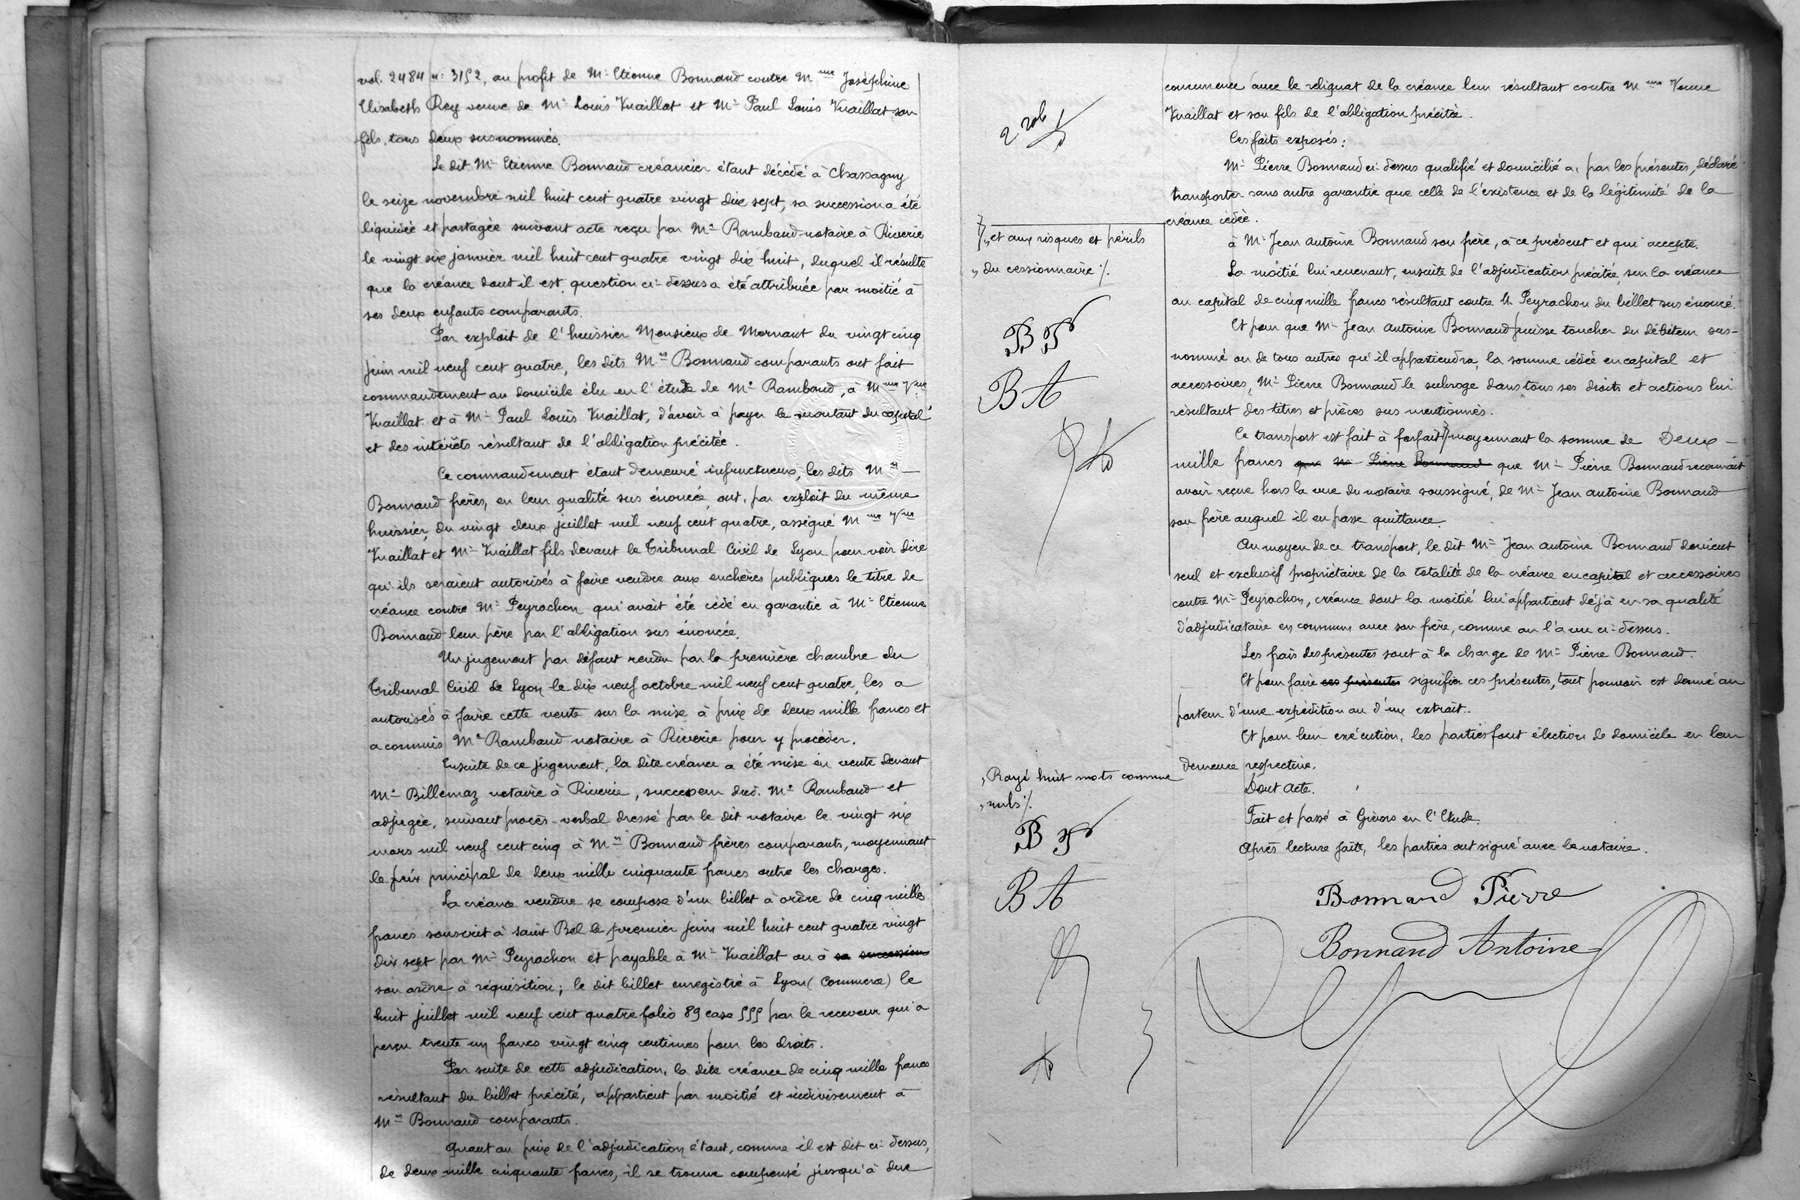 vol. 2484 n: 3152, au profit de Mr Etienne Bonnand contre Mme Joséphine
Elisabeth Rey veuve de Mr Louis Vuaillat et Mr Paul Louis Vuaillat son
fils, tous deux susnommés.
Le dit Mr Etienne Bonnand créancier étant décédé à Chassagny
le seize novembre mil huit cent quatre vingt dix sept, sa succession a été
liquidée et partagée suivant acte reçu par Me Rambaud notaire à Riverie
le vingt six janvier mil huit cent quatre vingt dix huit, duquel il résulte
que la créance dont il est question ci-dessus a été attribuée par moitié à
ses deux enfants comparants.
Par exploit de l'huissier Monsieux de Mornant du vingt cinq
juin mil neuf cent quatre, les dits Mrs Bonnand comparants ont fait
commandement au domicile élu en l'étude de Me Rambaud, à Mme Vve
Vuaillat et à Mr Paul Louis Vuaillat, d'avoir à payer le montant du capital
et des intérêts résultant de l'obligation précitée.
Ce commandement étant demeuré infructueux, les dits Mrs
Bonnand frères, en leur qualité sus énoncée, ont, par exploit du même
huissier, du vingt deux juillet mil neuf cent quatre, assigné Mme Vve
Vuaillat et Mr Vuaillat fils devant le Tribunal Civil de Lyon pour voir dire
qu'ils seraient autorisés à faire vendre aux enchères publiques le titre de
créance contre Mr Peyrachon qui avait été cédé en garantie à Mr Etienne
Bonnand leur père par l'obligation sus énoncée.
Un jugement par défaut rendu par la première chambre du
Tribunal Civil de Lyon le dix neuf octobre mil neuf cent quatre, les a
autorisés à faire cette vente sur la mise à prix de deux mille francs et
a commis Me Rambaud notaire à Riverie pour y procéder.
Ensuite de ce jugement, la dite créance a été mise en vente devant
Me Billemaz notaire à Riverie, successeur dud. Me Rambaud et
adjugée, suivant procès-verbal dressé par le dit notaire le vingt six
mars mil neuf cent cinq à Mrs Bonnand frères comparants, moyennant
le prix principal de deux mille cinquante francs outre les charges.
La créance vendue se compose d'un billet à ordre de cinq mille
francs souscrit à Saint Bel le premier juin mil huit cent quatre vingt
dix sept par Mr Peyrachon et payable à Mr Vuaillat ou à sa succession
son ordre à réquisition; le dit billet enregistré à Lyon (Commerce) le
huit juillet mil neuf cent quatre folio 89 case 555 par le receveur qui a
perçu trente un francs vingt cinq centimes pour les droits.
Par suite de cette adjudication, la dite créance de cinq mille francs
résultant du billet précité, appartient par moitié et indivisément à
Mrs Bonnand comparants.
Quant au prix de l'adjudication étant, comme il est dit ci-dessus,
de deux mille cinquante francs, il se trouve compensé jusqu'à due
concurrence avec le reliquat de la créance leur résultant contre Mme Veuve
Vuaillat et son fils de l'obligation précitée.
Ces faits exposés:
Mr Pierre Bonnand ci-dessus qualifié et domicilié a, par les présentes, déclaré
transporter sans autre garantie que celle de l'existence et de la légitimité de la
créance cédée.
à Mr Jean Antoine Bonnand son frère, à ce présent et qui accepte.
La moitié lui revenant, ensuite de l'adjudication précitée, sur la créance
au capital de cinq mille francs résultant contre Mr Peyrachon du billet sus énoncé.
Et pour que Mr Jean Antoine Bonnand puisse toucher du débiteur sus-
nommé ou de tous autres qu'il appartiendra, la somme cédée en capital et
accessoires, Mr Pierre Bonnand le subroge dans tous ses droits et actions lui
résultant des titres et pièces sus mentionnés.
Ce transport est fait à forfait moyennant la somme de Deux
mille francs que Mr Pierre Bonnand que Mr Pierre Bonnand reconnait
avoir reçue hors la vue du notaire soussigné, de Mr Jean Antoine Bonnand
son frère auquel il en passe quittance.
Au moyen de ce transport, le dit Mr Jean Antoine Bonnand devient
seul et exclusif propriétaire de la totalité de la créance en capital et accessoires
contre Mr Peyrachon, créance dont la moitié lui appartient déjà en sa qualité
d'adjudicataire en commun avec son frère, comme on l'a vu ci-dessus.
Les frais des présentes sont à la charge de Mr Pierre Bonnand.
Et pour faire ces présentes signifier ces présentes, tout pouvoir est donné au
porteur d'une expédition ou d'un extrait.
Et pour leur exécution, les parties font élection de domicile en leur
demeure respective.
Dont acte.
Fait et passé à Givors en l'Etude.
Après lecture faite, les parties ont signé avec le notaire.
Bonnand Pierre
Bonnand Antoine
2 rôle
et aux risques et périls
du cessionnaire /.
BP
BA
Rayé huit mots comme
nuls /.
BP
BA